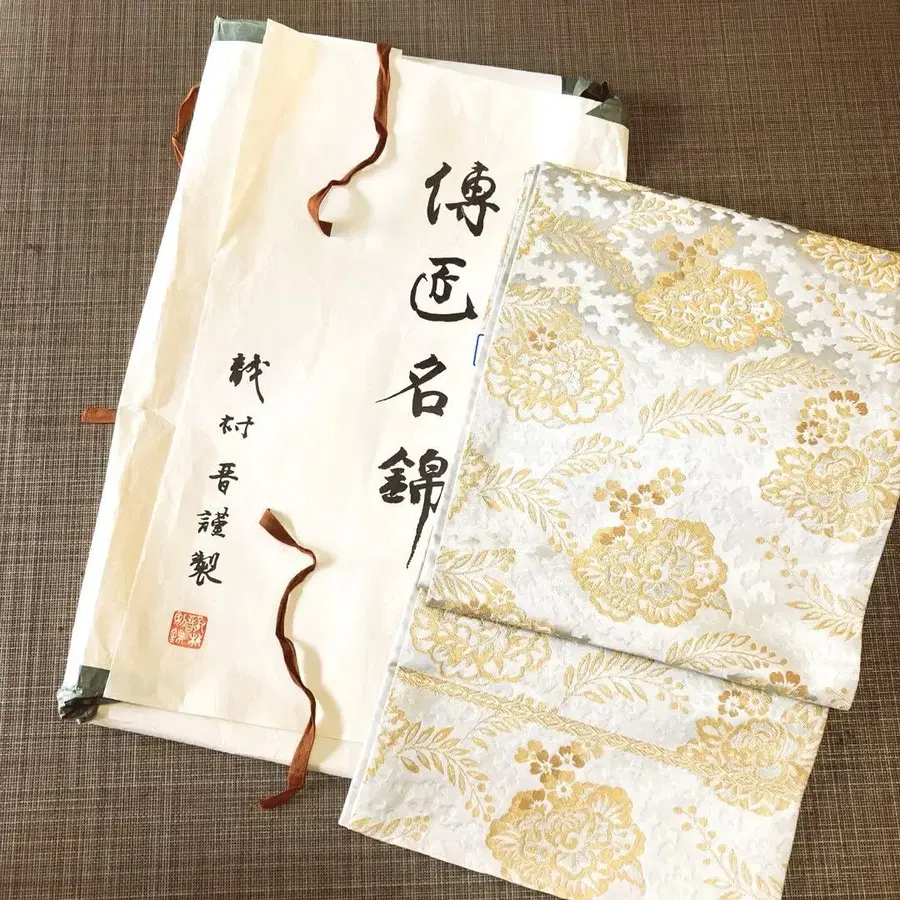 傳匠名錦
村晋謹製